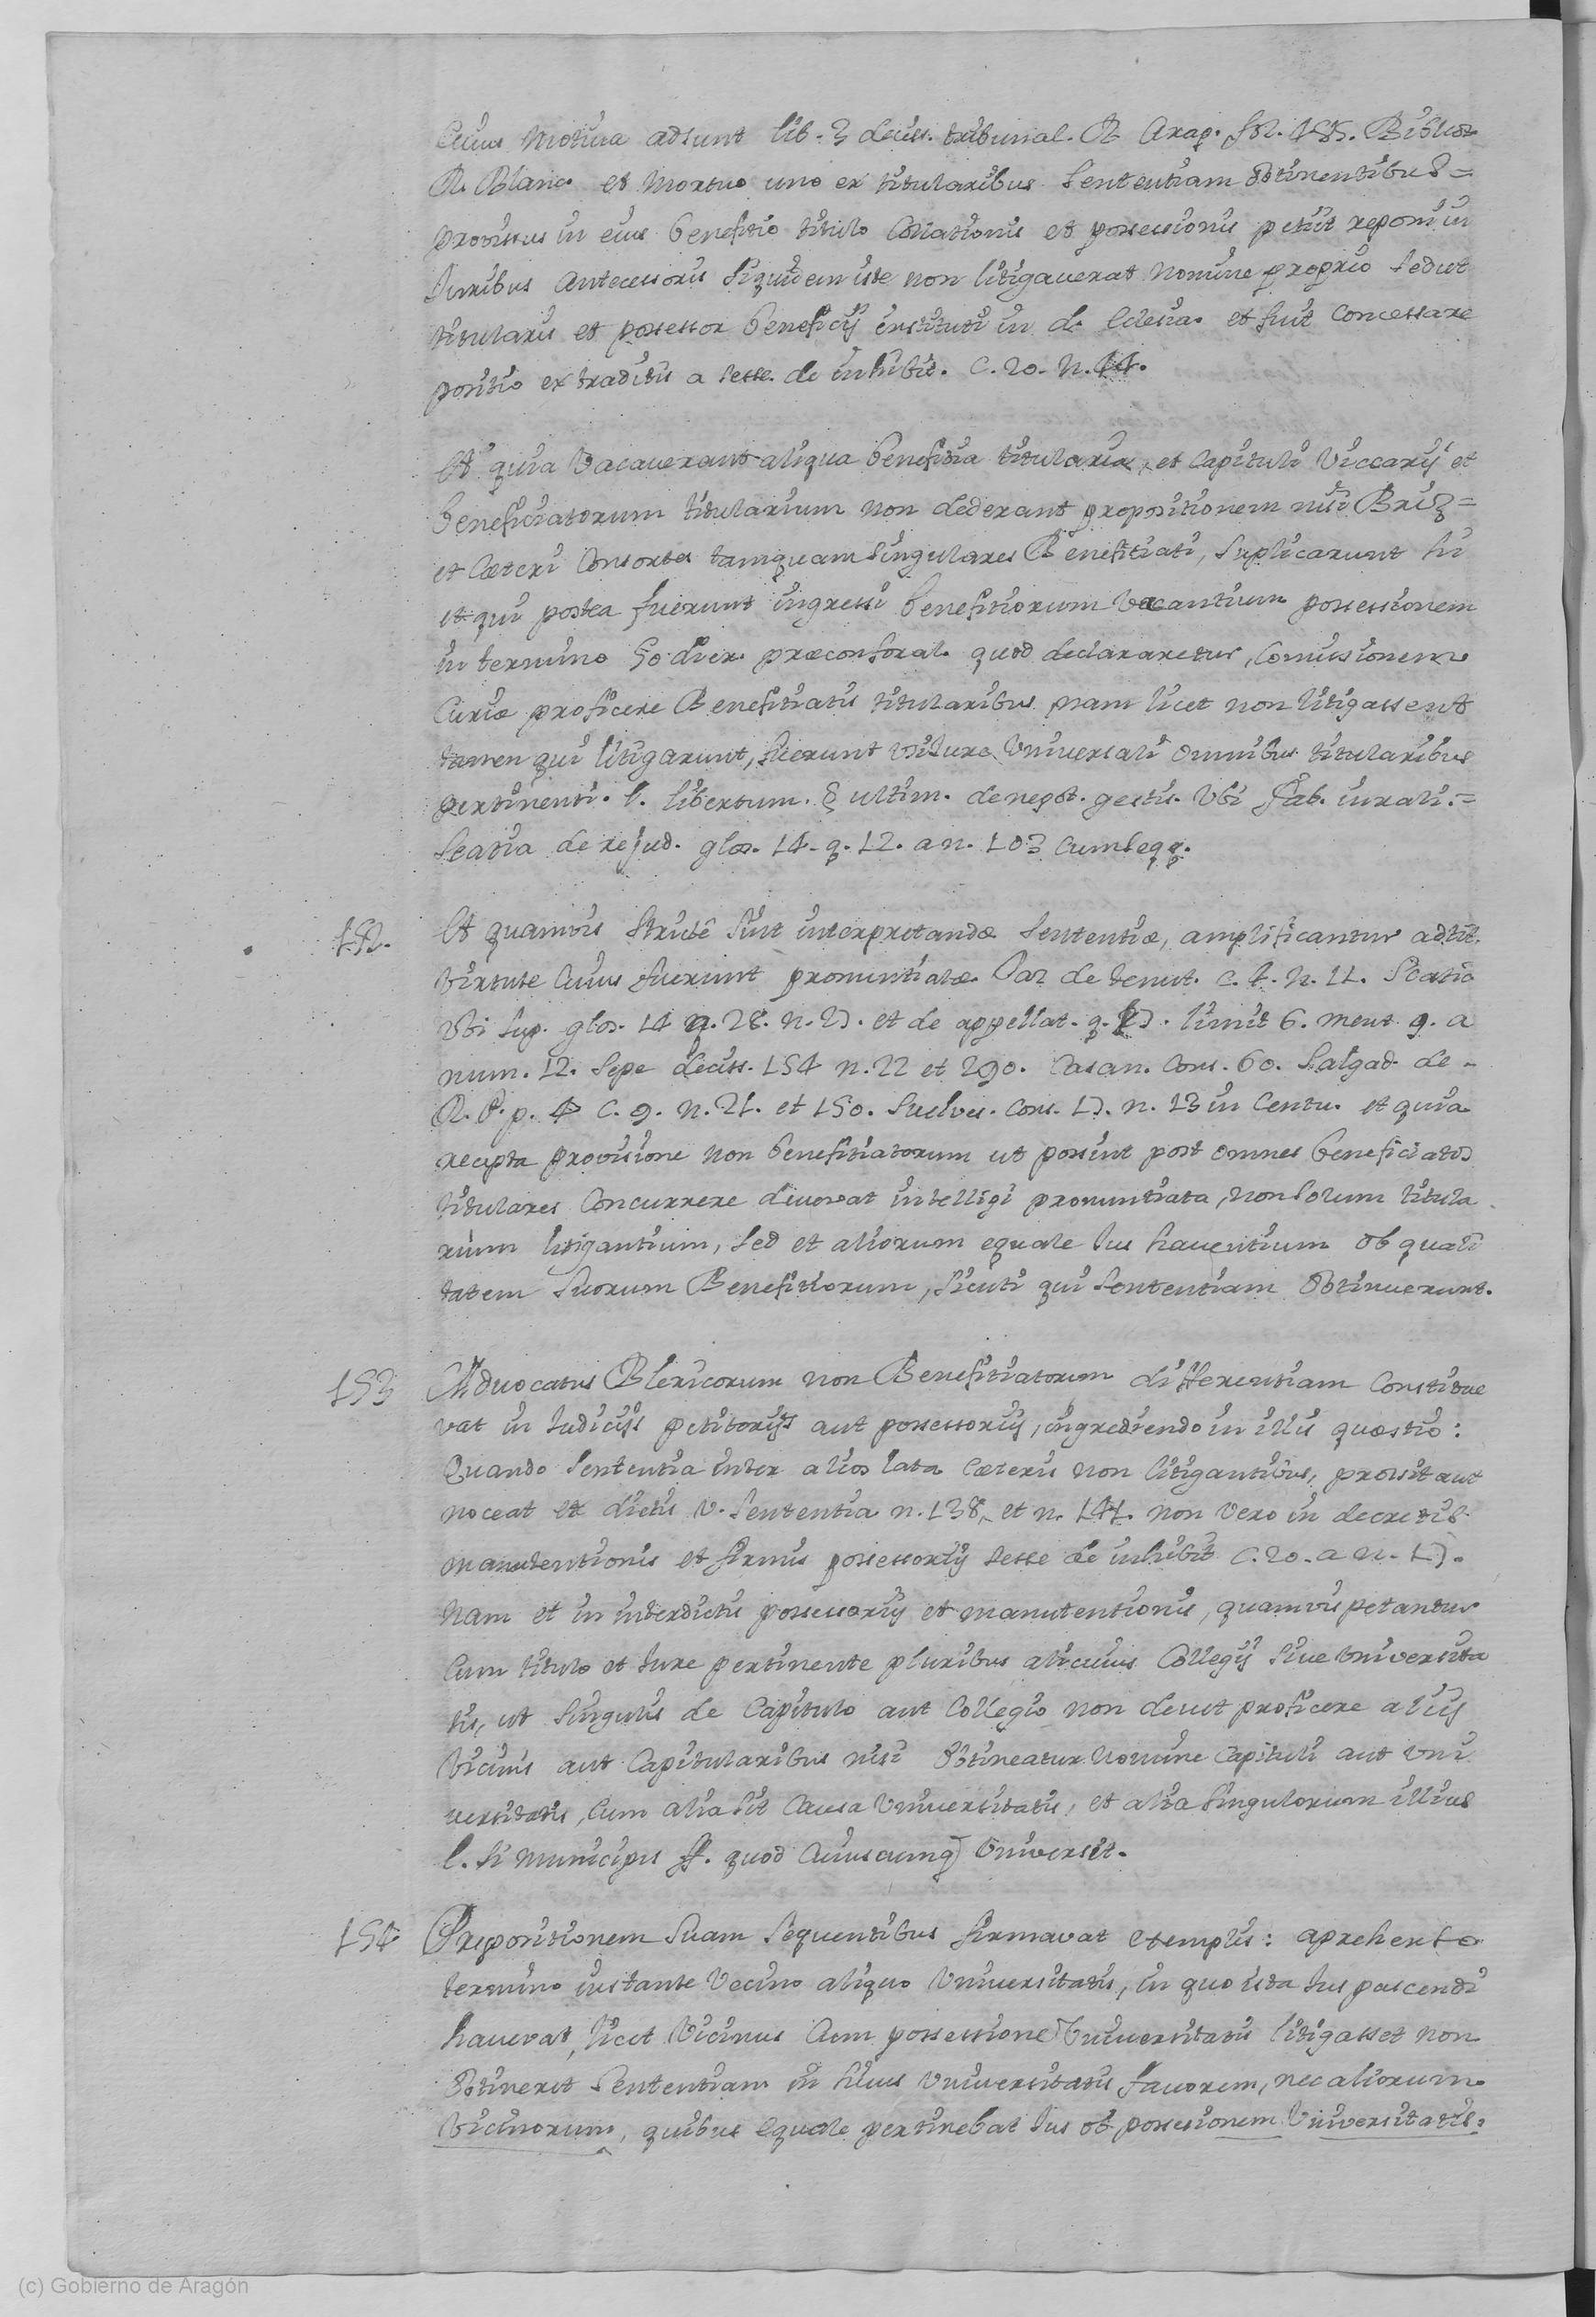 Cuius Motiva adsunt lib. 3 deciss. tribunal. R. Arag. fol. 185. Bibliot
R. Blanco et Mortuo uno ex titularibus Sententiam obtinentibus=
provissus in eius benefitio titulo Collationis et possessionis petiit reponi in
Iuribus Antecessoris siquidem iste non litigaverat nomine proprio sed ut
titularis et possessor beneficij instituti in d. Eclesia. et fuit concessa re
positio ex traditis a sesse. de inhibit. C. 20. n. 44.
Et quia Vacaverant aliqua benefitia titularia, et Capituli Viccarij et
beneficiatorum titularium non dederant propositionem nisi Briz=
et Cæteri Consortes tamquam singulares Benefitiati, suplicarunt hi
et qui postea fuerunt ingressi benefitiorum vacantium possessionem
in termino 50 dier. præconforal. quod declararetur, Comissionem
Curiæ proficere Benefitiatis titularibus nam licet non litigassent
tamen qui litigarunt, fuerunt usi Iure Universali omnibus titularibus
pertinenti. l. libertum. § ultim. de negot. gestis. Ubi Fab. in rali.=
Scatia de re jud. glos. 14. q. 12. a n. 103 cum seqq.
152. Et quamvis strictê sint interpretandæ sententiæ, amplificantur ad tit.
virtute Cuius fuerunt pronuntiatæ. Paz de tenut. c. 4. n. 11. Scatia
Ubi sup. glos. 14 q. 28. n. 27. et de appellat. q. 17. limit 6. ment 9. a
num. 12. Sese deciss. 154 n. 22 et 290. Casan. Cons. 60. Salgad. de -
R. P. p. 4 C. 9. n. 21. et 150. Suelves. Cons. 17. n. 13 in Centu. et quia
recepta provisione non benefitiatorum ut possint post omnes beneficiatos
titulares concurrere devevat intelligi pronuntiata, non solum titula
rium litigantium, sed et aliorum equale Ius haventium ob quali
tatem suorum Benefitiorum, sicuti qui sententiam obtinuerunt.
153 Advocatus Clericorum non Benefitiatorum differentiam constitue
vat in Iudicijs petitorijs aut possessorijs, ingrediendo in illis quæstio:
Quando sententia inter alios lata cæteris non litigantibus, prossit aut
noceat ex dictis V. sententia n. 138, et n. 141. non vero in decretis
manutentionis et firmis possessorijs sesse de inhibit C. 20. a n. 17.
Nam et in interdictis possessorijs et manutentionis, quamvis petantur
Cum titulo et Iure pertinente pluribus alicuius Collegij sive universita
tis, ut singulis de Capitulo aut Collegio non devet proficere alijs
Vicinis aut Capitularibus nisi obtineatur nomine Capituli aut uni
versitatis, Cum alia sit causa Universitatis, et alia singulorum illius
l. si municipes ff. quod Cuiuscumq Universit.
154 Propositionem suam sequentibus firmavat exemplis: aprehenso
termino instante Vecino aliquo Universitatis, in quo ista Ius pascendi
havevat, licet Vicinus Cum possessione Universitatis litigasset non
obtineret sententiam in huius Universitatis favorem, nec aliorum
Vicinorum, quibus equale pertinebat Ius ob possesionem Universitatis:
(c) Gobierno de Aragón